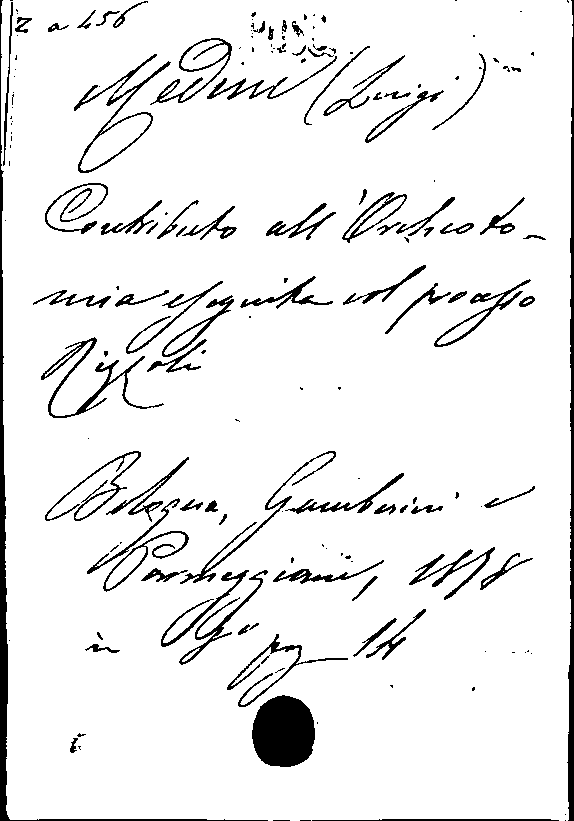 Z a 456
PUSC
Medini (Luigi)
Contributo all'Orcheoto-
mia eseguita col processo
Rizzoli
Bologna, Gamberini e
Parmeggiani, 1878
in 8° pag 14